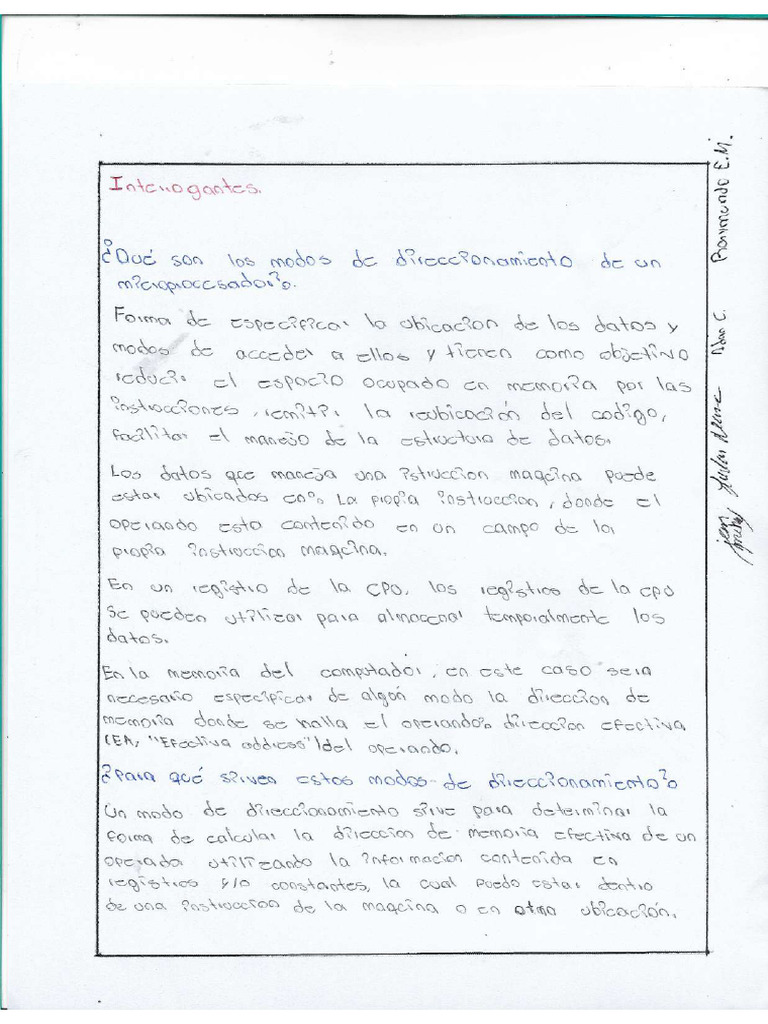 Interrogantes.
¿Qué son los modos de direccionamiento de un
microprocesador?.
Forma de especificar la ubicacion de los datos y
modos de acceder a ellos y tienen como objetivo
reducir el espacio ocupado en memoria por las
instrucciones, remitir la reubicación del codigo,
facilitar el manejo de la estructura de datos.
Los datos que maneja una istruccion maqcina puede
estar ubicados en: La propia instruccion, donde el
operando esta contenido en un campo de la
propia instruccion maqcina.
En un registro de la CPU, los registros de la cpu
se pueden utilizar para almacenar temporalmente los
datos.
En la memoria del computador, en este caso sera
necesario especificar de algún modo la direccion de
memoria donde se halla el operando: direccion efectiva
(EA, "Efectiva address") del operando.
¿Para qué sirven estos modos de direccionamiento?
Un modo de direccionamiento sirve para determinar la
forma de calcular la direccion de memoria efectiva de un
operador utilizando la informacion contenida en
registros y/o constantes, la cual puedo estar dentro
de una instruccion de la maqcina o en otra ubicación.
E.M.